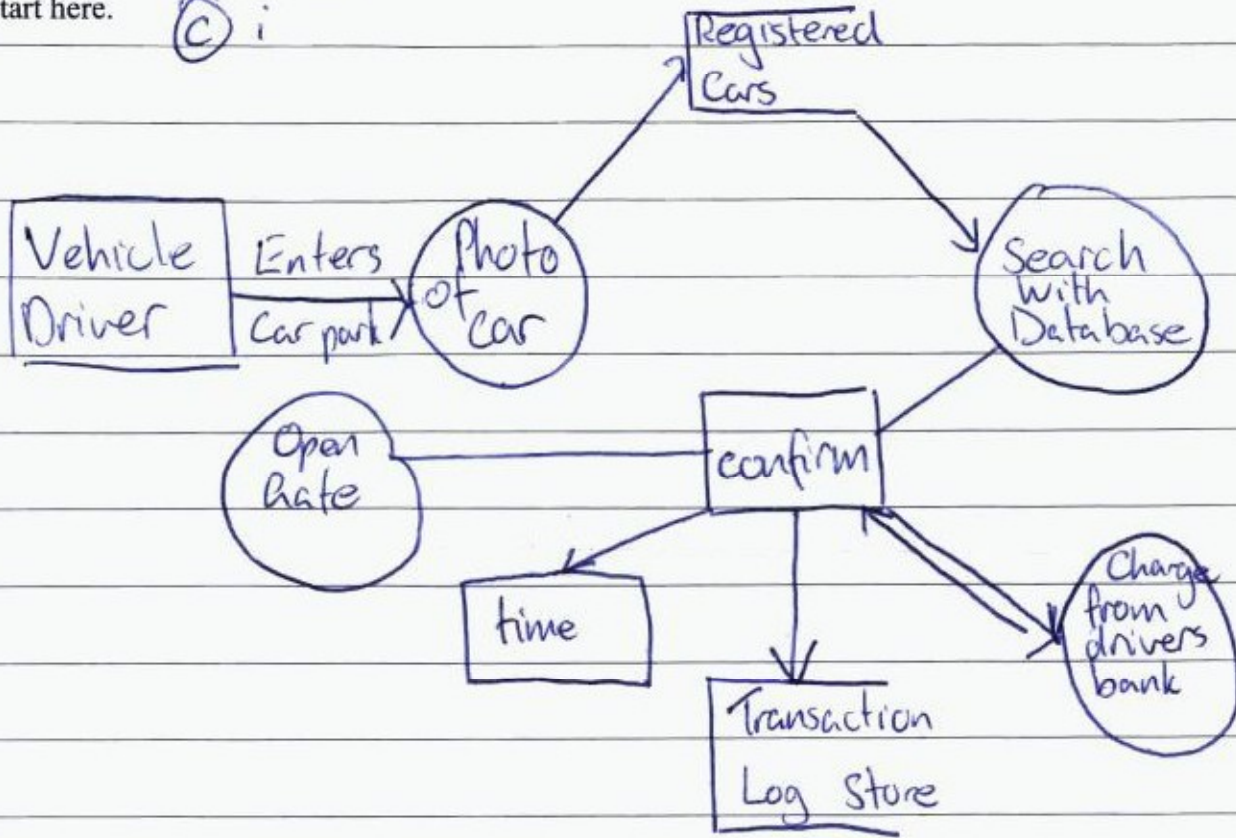 tart here.
C i
Registered
Cars
Vehicle
Driver
Enters
Car park
Photo
of
car
Search
with
Database
Open
Gate
confirm
time
Charge
from
drivers
bank
Transaction
Log Store